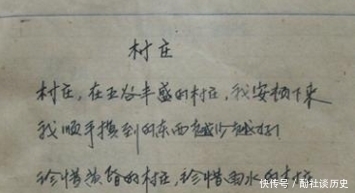 村庄
村庄，在五谷丰盛的村庄，我安顿下来
我顺手摸到的东西越少越好！
珍惜黄昏的村庄，珍惜雨水的村庄
快传号/酷社谈历史